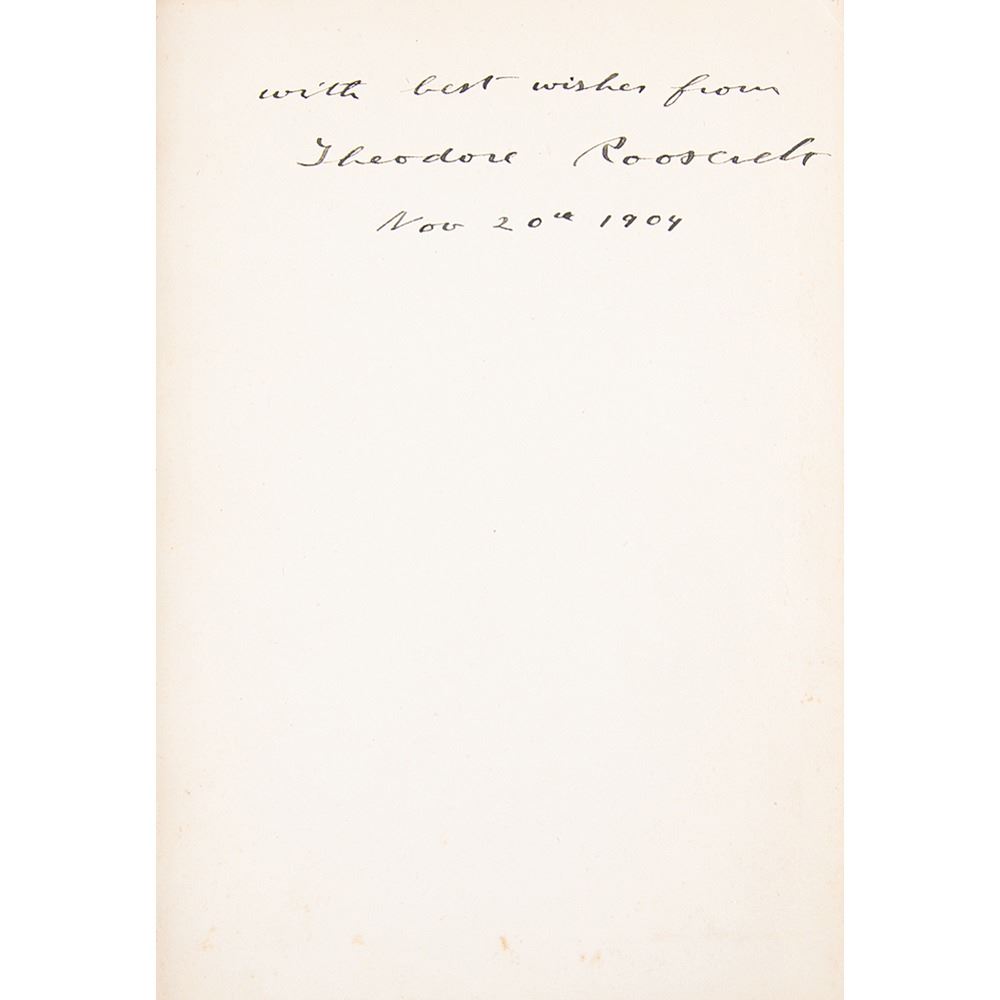 with best wishes from
Theodore Roosevelt
Nov 20th 1904